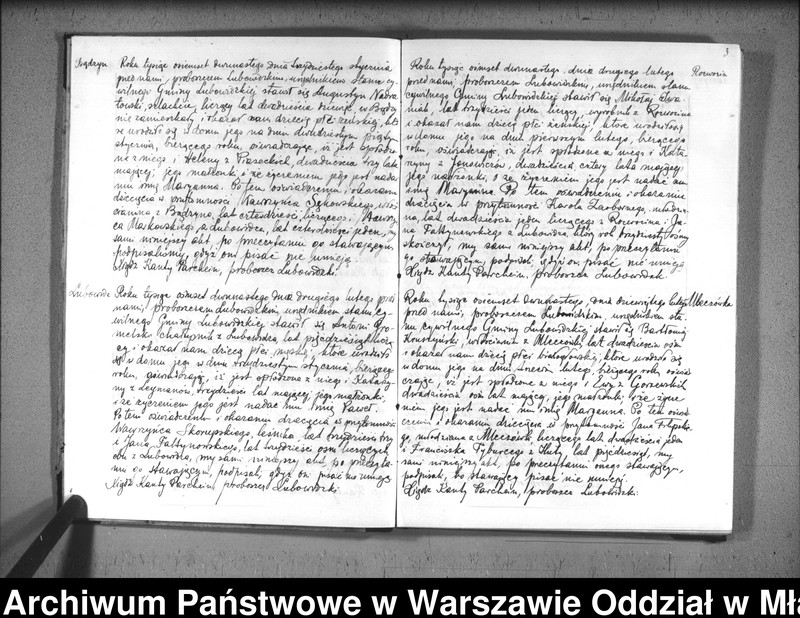 Bądzyn
Roku tysiąc osiemset dwunastego dnia trzydziestego stycznia
przed nami, proboszczem Lubowidzkim, urzędnikiem stanu cy-
wilnego Gminy Lubowidzkiej stawił się Augustyn
szlachcic, liczący lat dwadzieścia dziewięć, w Bądzy
nie zamieszkały i okazał nam dziecię płci żeńskiej, któ
re urodziło się w domu jego na dniu dwudziestym piątym
stycznia, bieżącego roku, oświadczając, iż jest spłodzo
ne z niego i Heleny z dwadzieścia trzy lata
mającej, jego małżonki i że życzeniem jego jest nadać
mu imię Maryanna. Po tem oświadczeniu i okazaniu
dziecięcia w przytomności Wawrzyńca
z Bądzyna, lat czterdzieści liczącego i Wawrzy
ńca z Lubowidza, lat czterdzieści jeden, my
sami niniejszy akt, po przeczytaniu go stawającym,
podpisaliśmy, gdyż oni pisać nie umieją.
Ksiądz Kanty Parchein, proboszcz Lubowidzki.
Lubowidz
Roku tysiąc ośmset dwunastego dnia drugiego lutego przed
nami, proboszczem Lubowidzkim, urzędnikiem stanu cy-
wilnego Gminy Lubowidzkiej stawił się Antoni
chałupnik z Lubowidza, lat pięćdziesiąt liczą
cy i okazał nam dziecię płci męskiej, które urodziło
się w domu jego w dniu trzydziestym stycznia, bieżącego
roku, oświadczając, iż jest spłodzone z niego i Katarzy
ny z trzydzieści lat mającej, jego małżonki
i że życzeniem jego jest nadać mu imię Paweł.
Po tem oświadczeniu i okazaniu dziecięcia w przytomności
Wawrzyńca leśnika, lat trzydzieści trzy
i Jana Faltynowskiego, lat trzydzieści osm liczących
obu z Lubowidza, my sami niniejszy akt, po przeczyta
niu go stawającym, podpisali, gdyż oni pisać nie umieją
Ksiądz Kanty Parchein, proboszcz Lubowidzki.
3
Rzeworin
Roku tysiąc ośmset dwunastego, dnia drugiego lutego
przed nami, proboszczem Lubowidzkim, urzędnikiem stanu
cywilnego Gminy Lubowidzkiej stawił się Mikołaj
lat trzydzieści jeden liczący, wyrobnik z
i okazał nam dziecię płci żeńskiej, które urodziło się
w domu jego na dniu pierwszym lutego, bieżącego
roku, oświadczając, iż jest spłodzone z niego i Kata
rzyny z dwadzieścia cztery lata mającej
jego małżonki, i że życzeniem jego jest nadać mu
imię Maryanna. Po tem oświadczeniu i okazaniu
dziecięcia w przytomności Karola
lat dwadzieścia jeden liczącego z i Ja
na Faltynowskiego z Lubowidza, który rok trzydziesty ósmy
skończył, my sami niniejszy akt, po przeczytaniu
go stawającym, podpisali, gdyż oni pisać nie umieją
Ksiądz Kanty Parchein, proboszcz Lubowidzki
Mleczówka
Roku tysiąc osiemset dwunastego, dnia dziewiątego lutego
przed nami, proboszczem Lubowidzkim, urzędnikiem sta
nu cywilnego Gminy Lubowidzkiej, stawił się Bartłomiej
włościanin z lat dwadzieścia osm
i okazał nam dziecię płci białogłowskiej, które urodziło się
w domu jego na dniu lutego, bieżącego roku oświad
czając, iż jest spłodzone z niego i Ewy z
dwadzieścia ośm lat mającej, jego małżonki i że życze
niem jego jest nadać mu imię Maryanna. Po tem oświad
czeniu i okazaniu dziecięcia w przytomności Jana
młodziana z liczącego lat dwadzieścia jeden
i Franciszka z lat pięćdziesiąt, my
sami niniejszy akt, po przeczytaniu onego stawającym,
podpisali, bo stawający pisać nie umieją.
Ksiądz Kanty Parchein, proboszcz Lubowidzki.
Archiwum Państwowe w Warszawie Oddział w Mła